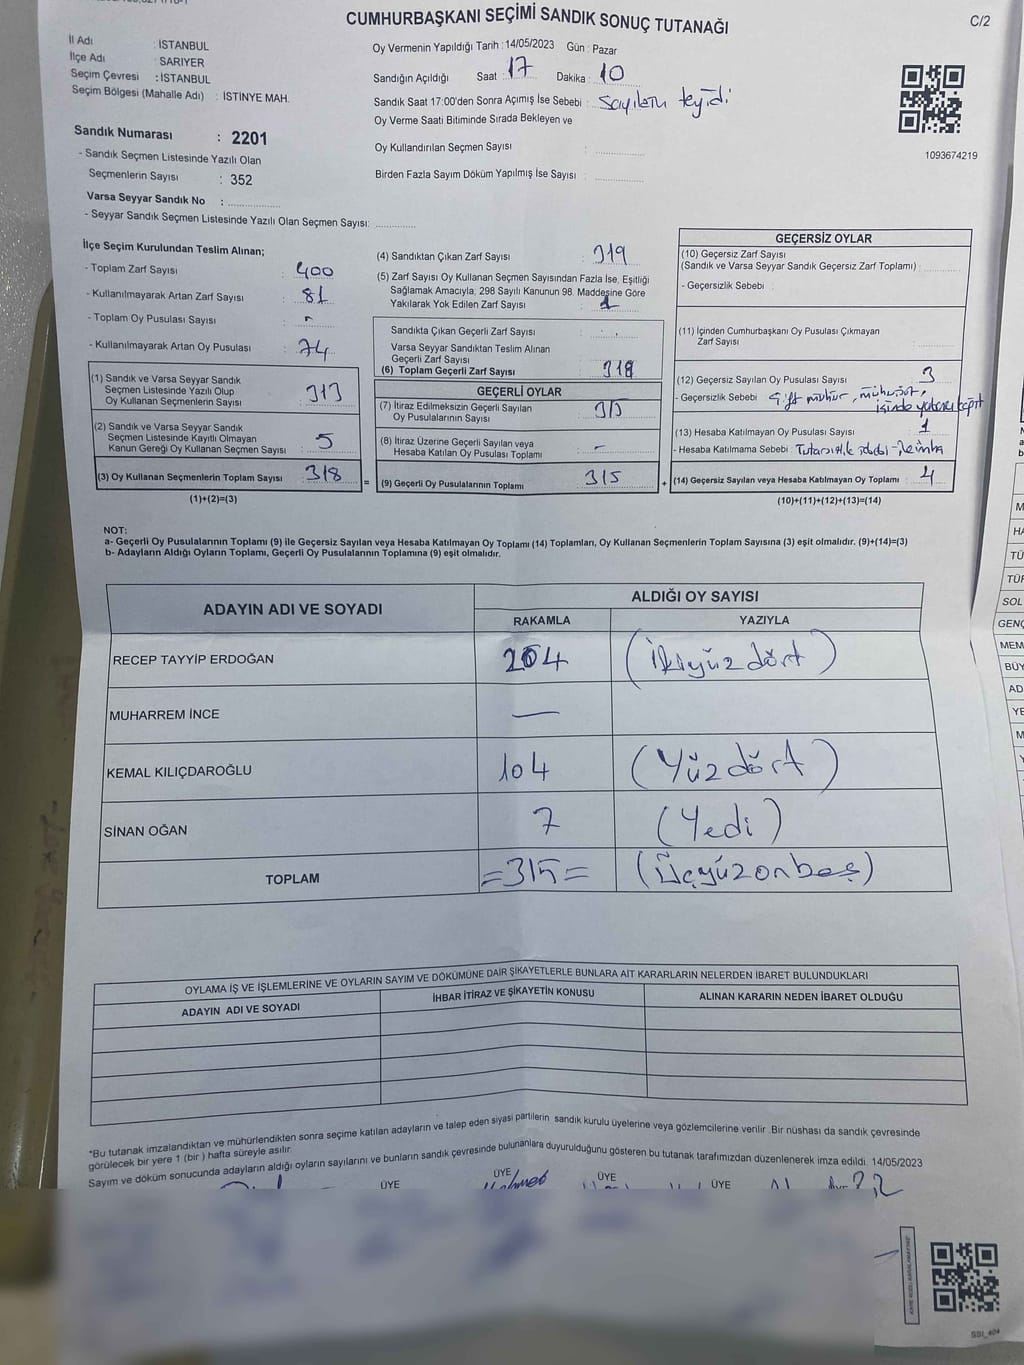 CUMHURBAŞKANI SEÇİMİ SANDIK SONUÇ TUTANAĞI
C/2
İl Adı : İSTANBUL
İlçe Adı : SARIYER
Seçim Çevresi : İSTANBUL
Seçim Bölgesi (Mahalle Adı) : İSTİNYE MAH.
Sandık Numarası : 2201
- Sandık Seçmen Listesinde Yazılı Olan
Seçmenlerin Sayısı : 352
Varsa Seyyar Sandık No :
- Seyyar Sandık Seçmen Listesinde Yazılı Olan Seçmen Sayısı:
Oy Vermenin Yapıldığı Tarih : 14/05/2023 Gün : Pazar
Sandığın Açıldığı Saat : 17 Dakika : 10
Sandık Saat 17:00'den Sonra Açımış İse Sebebi : sayıların teyidi
Oy Verme Saati Bitiminde Sırada Bekleyen ve
Oy Kullandırılan Seçmen Sayısı :
Birden Fazla Sayım Döküm Yapılmış İse Sayısı :
1093674219
İlçe Seçim Kurulundan Teslim Alınan;
- Toplam Zarf Sayısı : 400
- Kullanılmayarak Artan Zarf Sayısı : 81
- Toplam Oy Pusulası Sayısı :
- Kullanılmayarak Artan Oy Pusulası : 74
(1) Sandık ve Varsa Seyyar Sandık
Seçmen Listesinde Yazılı Olup
Oy Kullanan Seçmenlerin Sayısı : 313
(2) Sandık ve Varsa Seyyar Sandık
Seçmen Listesinde Kayıtlı Olmayan
Kanun Gereği Oy Kullanan Seçmen Sayısı : 5
(3) Oy Kullanan Seçmenlerin Toplam Sayısı : 318
(1)+(2)=(3)
(4) Sandıktan Çıkan Zarf Sayısı : 319
(5) Zarf Sayısı Oy Kullanan Seçmen Sayısından Fazla İse, Eşitliği
Sağlamak Amacıyla, 298 Sayılı Kanunun 98. Maddesine Göre
Yakılarak Yok Edilen Zarf Sayısı : 1
Sandıkta Çıkan Geçerli Zarf Sayısı :
Varsa Seyyar Sandıktan Teslim Alınan
Geçerli Zarf Sayısı
(6) Toplam Geçerli Zarf Sayısı : 318
GEÇERLİ OYLAR
(7) İtiraz Edilmeksizin Geçerli Sayılan
Oy Pusulasının Sayısı : 315
(8) İtiraz Üzerine Geçerli Sayılan veya
Hesaba Katılan Oy Pusulası Toplamı : -
= (9) Geçerli Oy Pusulalarının Toplamı : 315
GEÇERSİZ OYLAR
(10) Geçersiz Zarf Sayısı
(Sandık ve Varsa Seyyar Sandık Geçersiz Zarf Toplamı) :
- Geçersizlik Sebebi :
(11) İçinden Cumhurbaşkanı Oy Pusulası Çıkmayan
Zarf Sayısı :
(12) Geçersiz Sayılan Oy Pusulası Sayısı : 3
- Geçersizlik Sebebi : Çift mühür, mühürsüz,
içinde
(13) Hesaba Katılmayan Oy Pusulası : 1
- Hesaba Katılmama Sebebi :
+ (14) Geçersiz Sayılan veya Hesaba Katılmayan Oy Toplamı : 4
(10)+(11)+(12)+(13)=(14)
NOT:
a- Geçerli Oy Pusulalarının Toplamı (9) ile Geçersiz Sayılan veya Hesaba Katılmayan Oy Toplamı (14) Toplamları, Oy Kullanan Seçmenlerin Toplam Sayısına (3) eşit olmalıdır. (9)+(14)=(3)
b- Adayların Aldığı Oyların Toplamı, Geçerli Oy Pusulalarının Toplamına (9) eşit olmalıdır.
ADAYIN ADI VE SOYADI
ALDIĞI OY SAYISI
RAKAMLA YAZIYLA
RECEP TAYYİP ERDOĞAN 204 (İkiyüzdört)
MUHARREM İNCE —
KEMAL KILIÇDAROĞLU 104 (Yüzdört)
SİNAN OĞAN 7 (Yedi)
TOPLAM =315= (Üçyüzonbeş)
OYLAMA İŞ VE İŞLEMLERİNE VE OYLARIN SAYIM VE DÖKÜMÜNE DAİR ŞİKAYETLERLE BUNLARA AİT KARARLARIN NELERDEN İBARET BULUNDUKLARI
ADAYIN ADI VE SOYADI İHBAR İTİRAZ VE ŞİKAYETİN KONUSU ALINAN KARARIN NEDEN İBARET OLDUĞU
*Bu tutanak imzalandıktan ve mühürlendikten sonra seçime katılan adayların ve talep eden siyasi partilerin sandık kurulu üyelerine veya gözlemcilerine verilir. Bir nüshası da sandık çevresinde
görülecek bir yere 1 (bir) hafta süreyle asılır.
Sayım ve döküm sonucunda adayların aldığı oyların sayılarını ve bunların sandık çevresinde bulunanlara duyurulduğunu gösteren bu tutanak tarafımızdan düzenlenerek imza edildi. 14/05/2023
ÜYE ÜYE ÜYE ÜYE
SSI_404
SOL
GENÇ
MEM
BÜY
AD